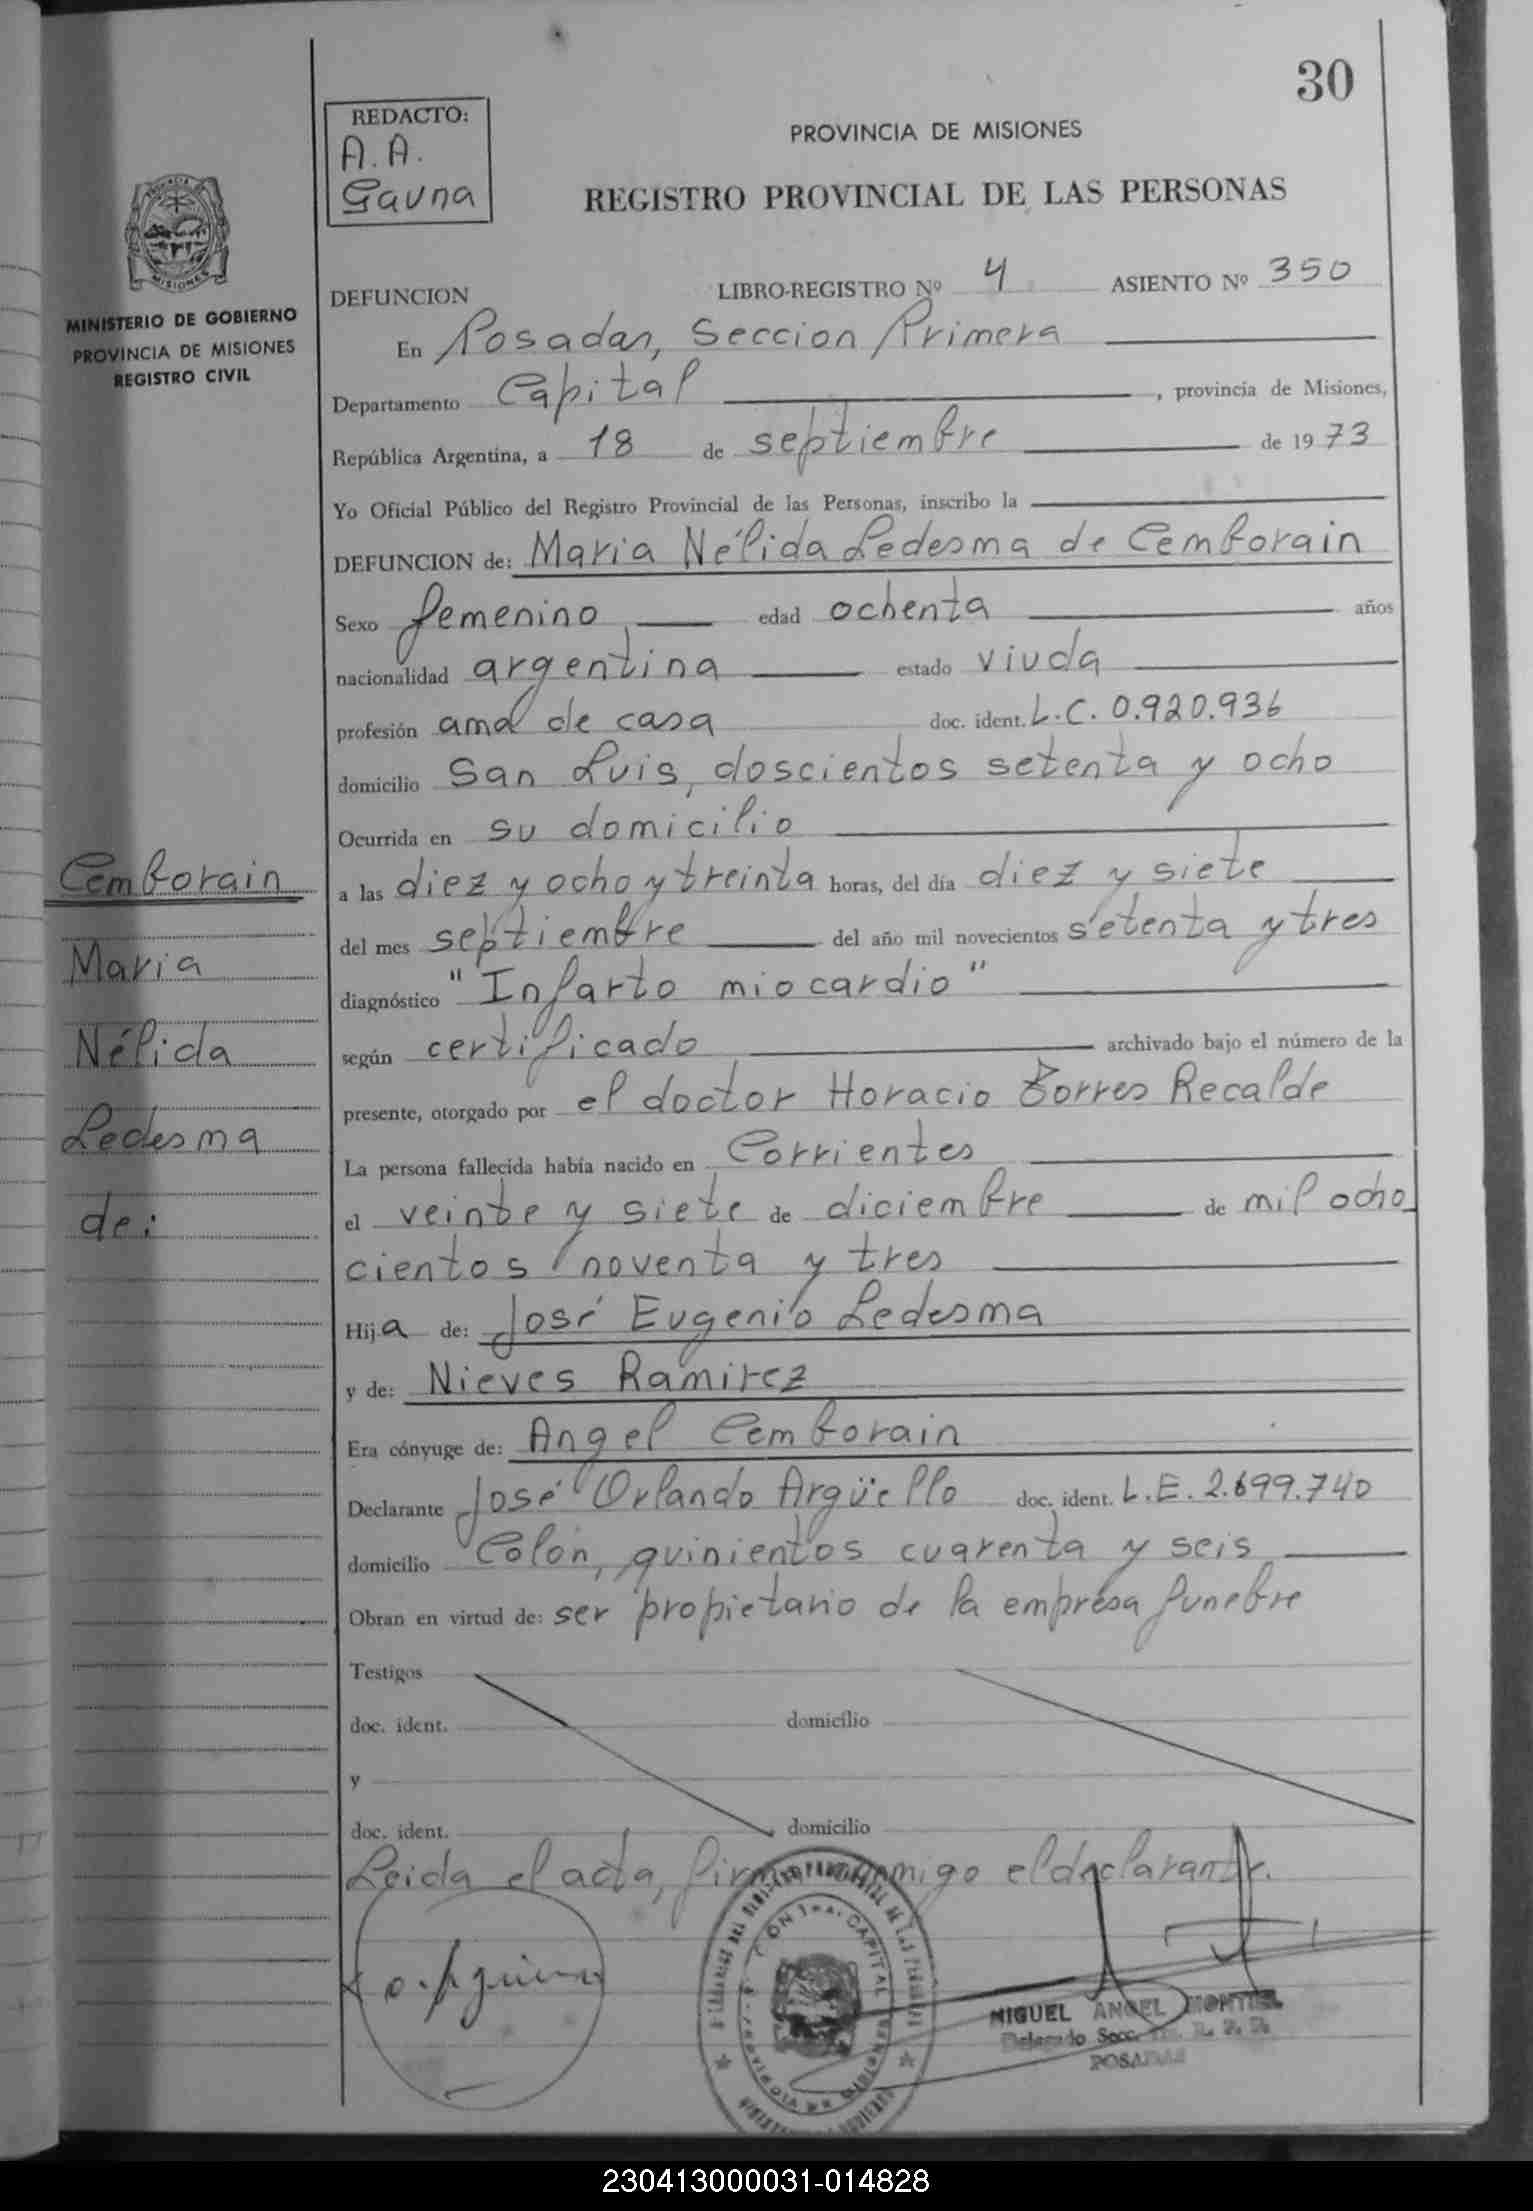 30
REDACTO:
A. A.
Gauna
PROVINCIA DE MISIONES
REGISTRO PROVINCIAL DE LAS PERSONAS
MISIONES
MINISTERIO DE GOBIERNO
PROVINCIA DE MISIONES
REGISTRO CIVIL
DEFUNCION LIBRO-REGISTRO Nº 4 ASIENTO Nº 350
En Posadas, Seccion Primera
Departamento Capital, provincia de Misiones,
República Argentina, a 18 de septiembre de 1973
Yo Oficial Público del Registro Provincial de las Personas, inscribo la
DEFUNCION de: Maria Nélida Ledesma de Cemborain
Sexo femenino edad ochenta años
nacionalidad argentina estado viuda
profesión ama de casa doc. ident. L.C. 0.920.936
domicilio San Luis, doscientos setenta y ocho
Ocurrida en su domicilio
a las diez y ocho y treinta horas, del día diez y siete
del mes septiembre del año mil novecientos setenta y tres
diagnóstico "Infarto miocardio"
según certificado archivado bajo el número de la
presente, otorgado por el doctor Horacio Torres Recalde
La persona fallecida había nacido en Corrientes
el veinte y siete de diciembre de mil ocho
cientos noventa y tres
Hija de: José Eugenio Ledesma
y de: Nieves Ramirez
Era cónyuge de: Angel Cemborain
Declarante José Orlando Argüello doc. ident. L.E. 2.699.740
domicilio Colón, quinientos cuarenta y seis
Obran en virtud de: ser propietario de la empresa funebre
Testigos
doc. ident. domicilio
y
doc. ident. domicilio
Leida el acta, firma conmigo el declarante.
Cemborain
Maria
Nélida
Ledesma
de:
MIGUEL ANGEL MONTIEL
Delegado Secc.
POSADAS
230413000031-014828